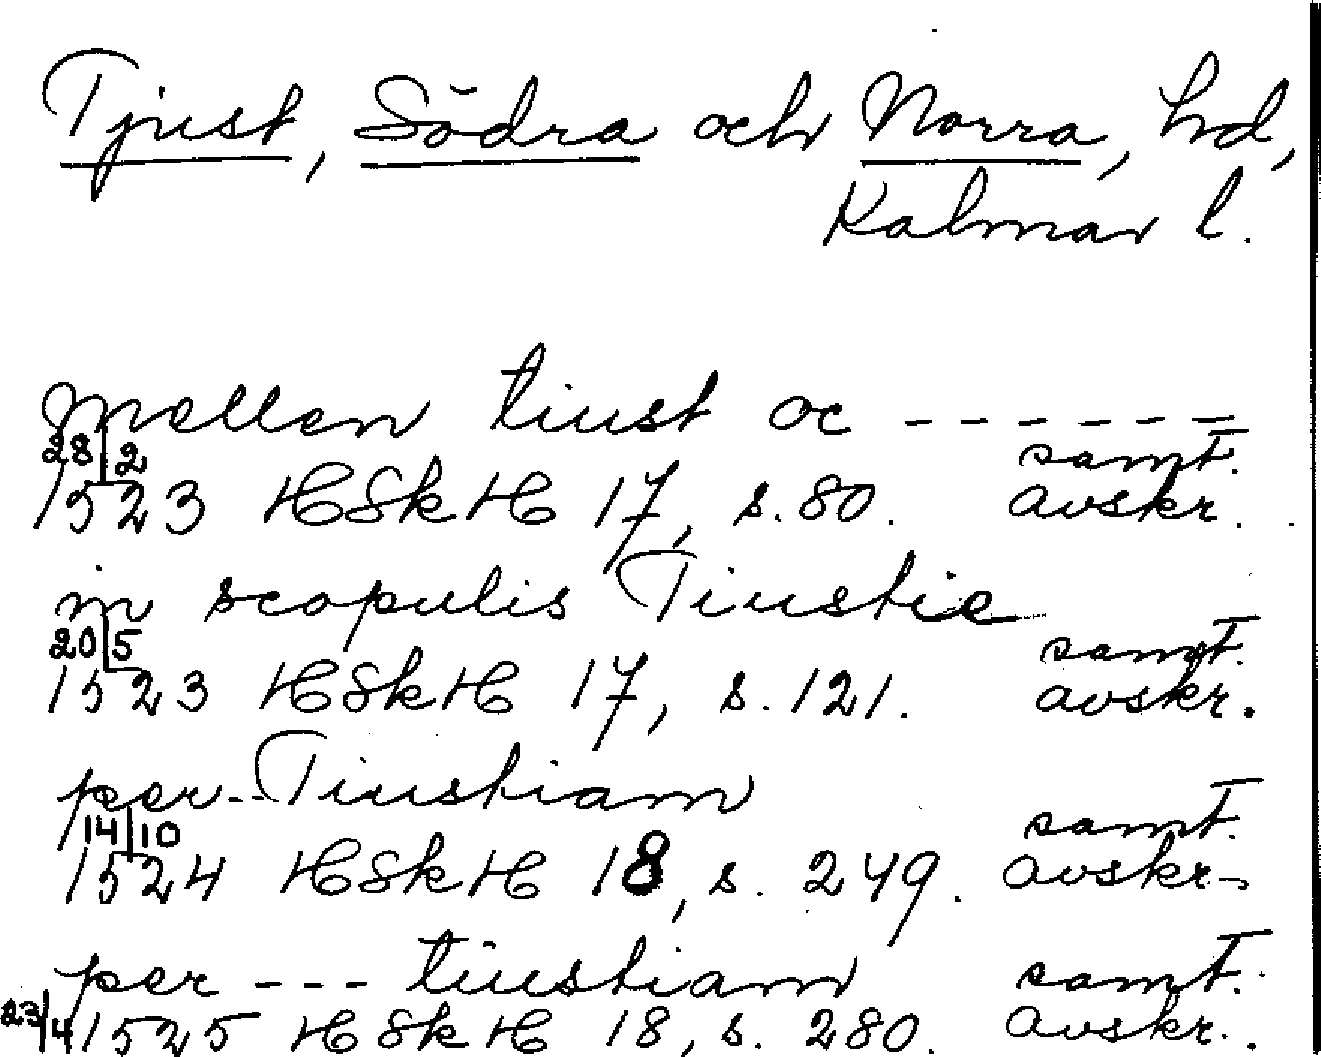 Tjust, Södra och Norra, hd,
Kalmar l.
mellen tiust oc - - - - - -
28/2 samt.
1523 HSkH 17, s. 80. avskr.
in scopulis Tiustie
20/5 samt.
1523 HSkH 17, s. 121. avskr.
per - - Tiustiam
14/10 samt.
1524 HSkH 18, s. 249. avskr.
per - - - tiustiam samt.
23/4 1525 HSkH 18, s. 280. avskr.